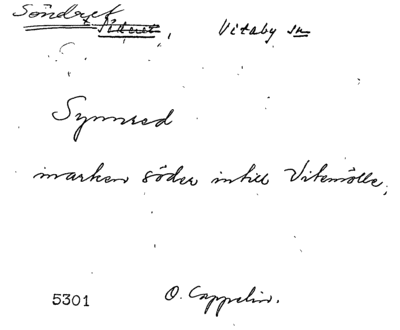 Söndret, Vitaby sn
Synnred
marken söder intill Vitemölle.
5301 O. Cappelin.